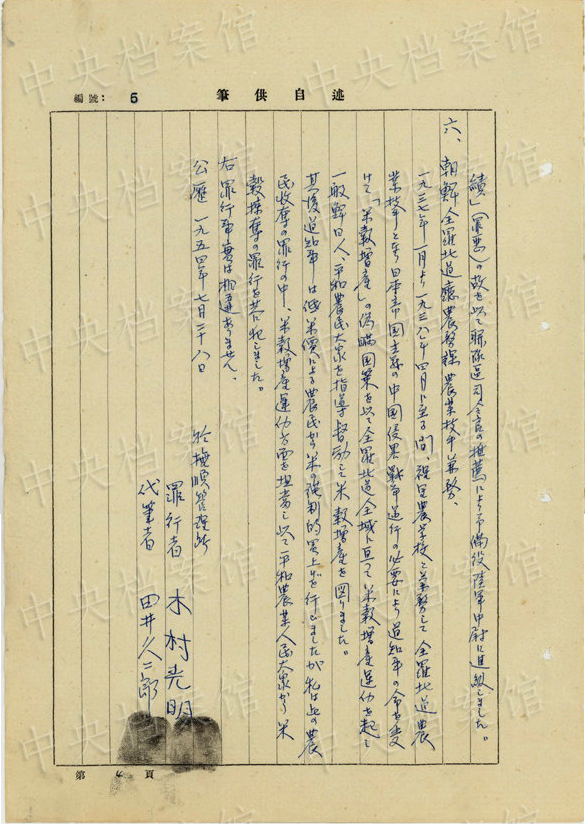 編號： 5
筆供自述
績」（罪悪）の故を以て聯隊区司令官の推薦により予備役陸軍中尉に進級しました。
六、朝鮮全羅北道庁農務課農業技手兼務、
一九三七年一月より一九三八年四月に至る間、裡里農学校と兼務して全羅北道農
業技手となり日本帝国主義の中国侵略戦争遂行の必要により道知事の命を受
けて「米穀増産」の偽瞞国策を以て全羅北道全域に亘って米穀増産運動を起し
一般鮮日人、平和農民大衆を指導督励して米穀増産を図りました。
其後道知事は低米価による農民から米の強制的買上げを行いましたが私は此の農
民收奪の罪行の中、米穀増産運動方面を担当し以て平和農業人民大衆から米
穀掠奪の罪行を共に犯しました。
右罪行事実は相違ありません、
公歴一九五四年七月二十八日
於撫順管理所
罪行者 木村光明
代筆者 田井久二郎
第 頁
中央档案馆